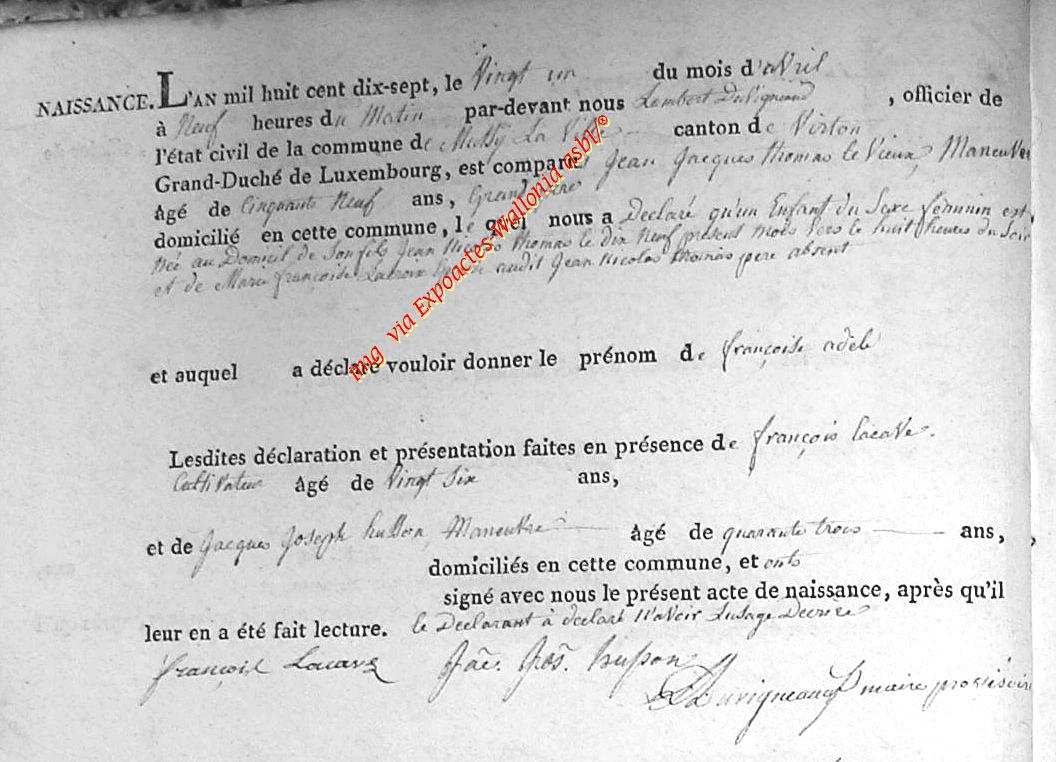 NAISSANCE. L'AN mil huit cent dix-sept, le Vingt un du mois d'avril
à Neuf heures du Matin par-devant nous Lambert Duvigneaud , officier de
l'état civil de la commune de Mussy La Ville canton de Virton
Grand-Duché de Luxembourg, est comparu Jean Jacques thomas le Vieux Maneuvre
âgé de Cinquante Neuf ans, Grand
domicilié en cette commune, le quel nous a Declaré qu'un Enfant du Sexe féminin est
Née au Domicil de Son fils Jean Nicolas thomas le dix Neuf présent mois Vers le huit heures du Soir
et de Marie françoise Lacroix audit Jean Nicolas thomas pere absent
et auquel a déclaré vouloir donner le prénom de françoise adele
Lesdites déclaration et présentation faites en présence de françois
Cultivateur âgé de Vingt Six ans,
et de Jacques Joseph husson, Maneuvre âgé de quarante trois ans, ,
domiciliés en cette commune, et onts
signé avec nous le présent acte de naissance, après qu'il
leur en a été fait lecture. le Declarant à declaré N'avoir Lusage Decrire
françois Jac. Jos. husson
Duvigneaud maire provisoire
Img via Expoactes-Wallonia asbl/©